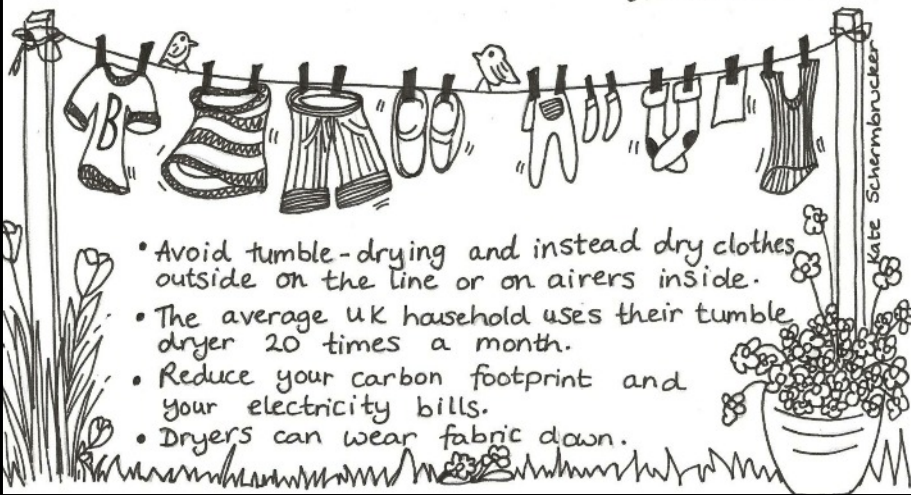 B
Kate Schermbrucker
• Avoid tumble-drying and instead dry clothes
outside on the line or on airers inside.
• The average UK household uses their tumble
dryer 20 times a month.
• Reduce your carbon footprint and
your electricity bills.
• Dryers can wear fabric down.